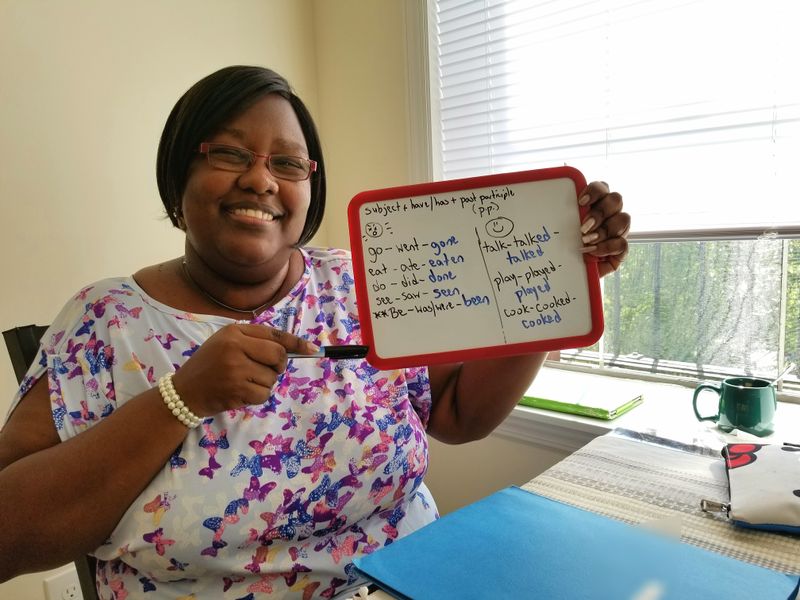 subject + have/has + past participle
(p.p.)
go - went - gone
eat - ate - eaten
do - did - done
see - saw - seen
**Be - was/were - been
talk - talked -
talked
play - played -
played
cook - cooked -
cooked